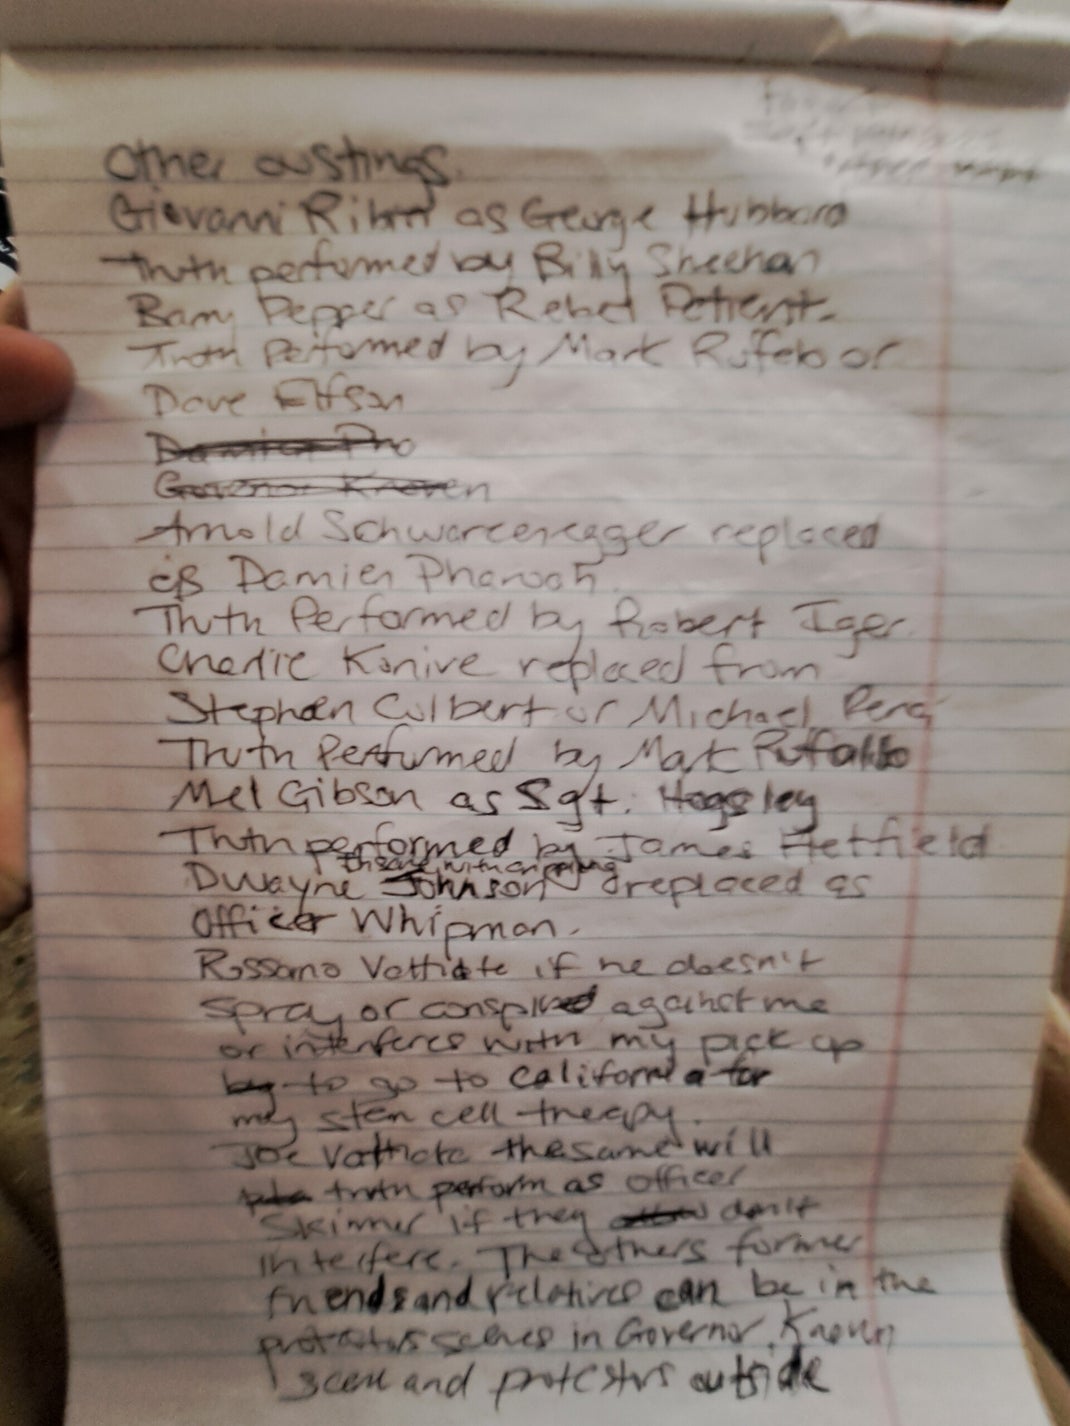 Other oustings.
Giovanni Ribm as George Hubbard
Truth performed by Billy Sheehan
Barry Pepper as Rebel Patient.
Truth Performed by Mark Rufelo or
Dave Elfson
Damien Pho
Governor Knoven
Arnold Schwarcenegger replaced
as Damien Pharoah.
Truth Performed by Robert Iger.
Charlie Konive replaced from
Stephen Culbert or Michael Pena
Truth Performed by Mark Ruffallo
Mel Gibson as Sgt. Hogsley
Truth performed by James Hetfield
Dwayne Johnson replaced as
Officer Whipman.
Rossano Vattiate if he doesn't
spray or conspired against me
or interferes with my pick up
by to go to California for
my stem cell treepy.
Joe Vattiate the same will
truth perform as officer
Skinner if they don't
interfere. The others former
friends and relatives can be in the
protestors scenes in Governor Knoven
scene and protestors outside